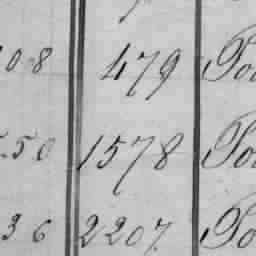 08 479 Po
.50 1578 Po
36 2207. Po